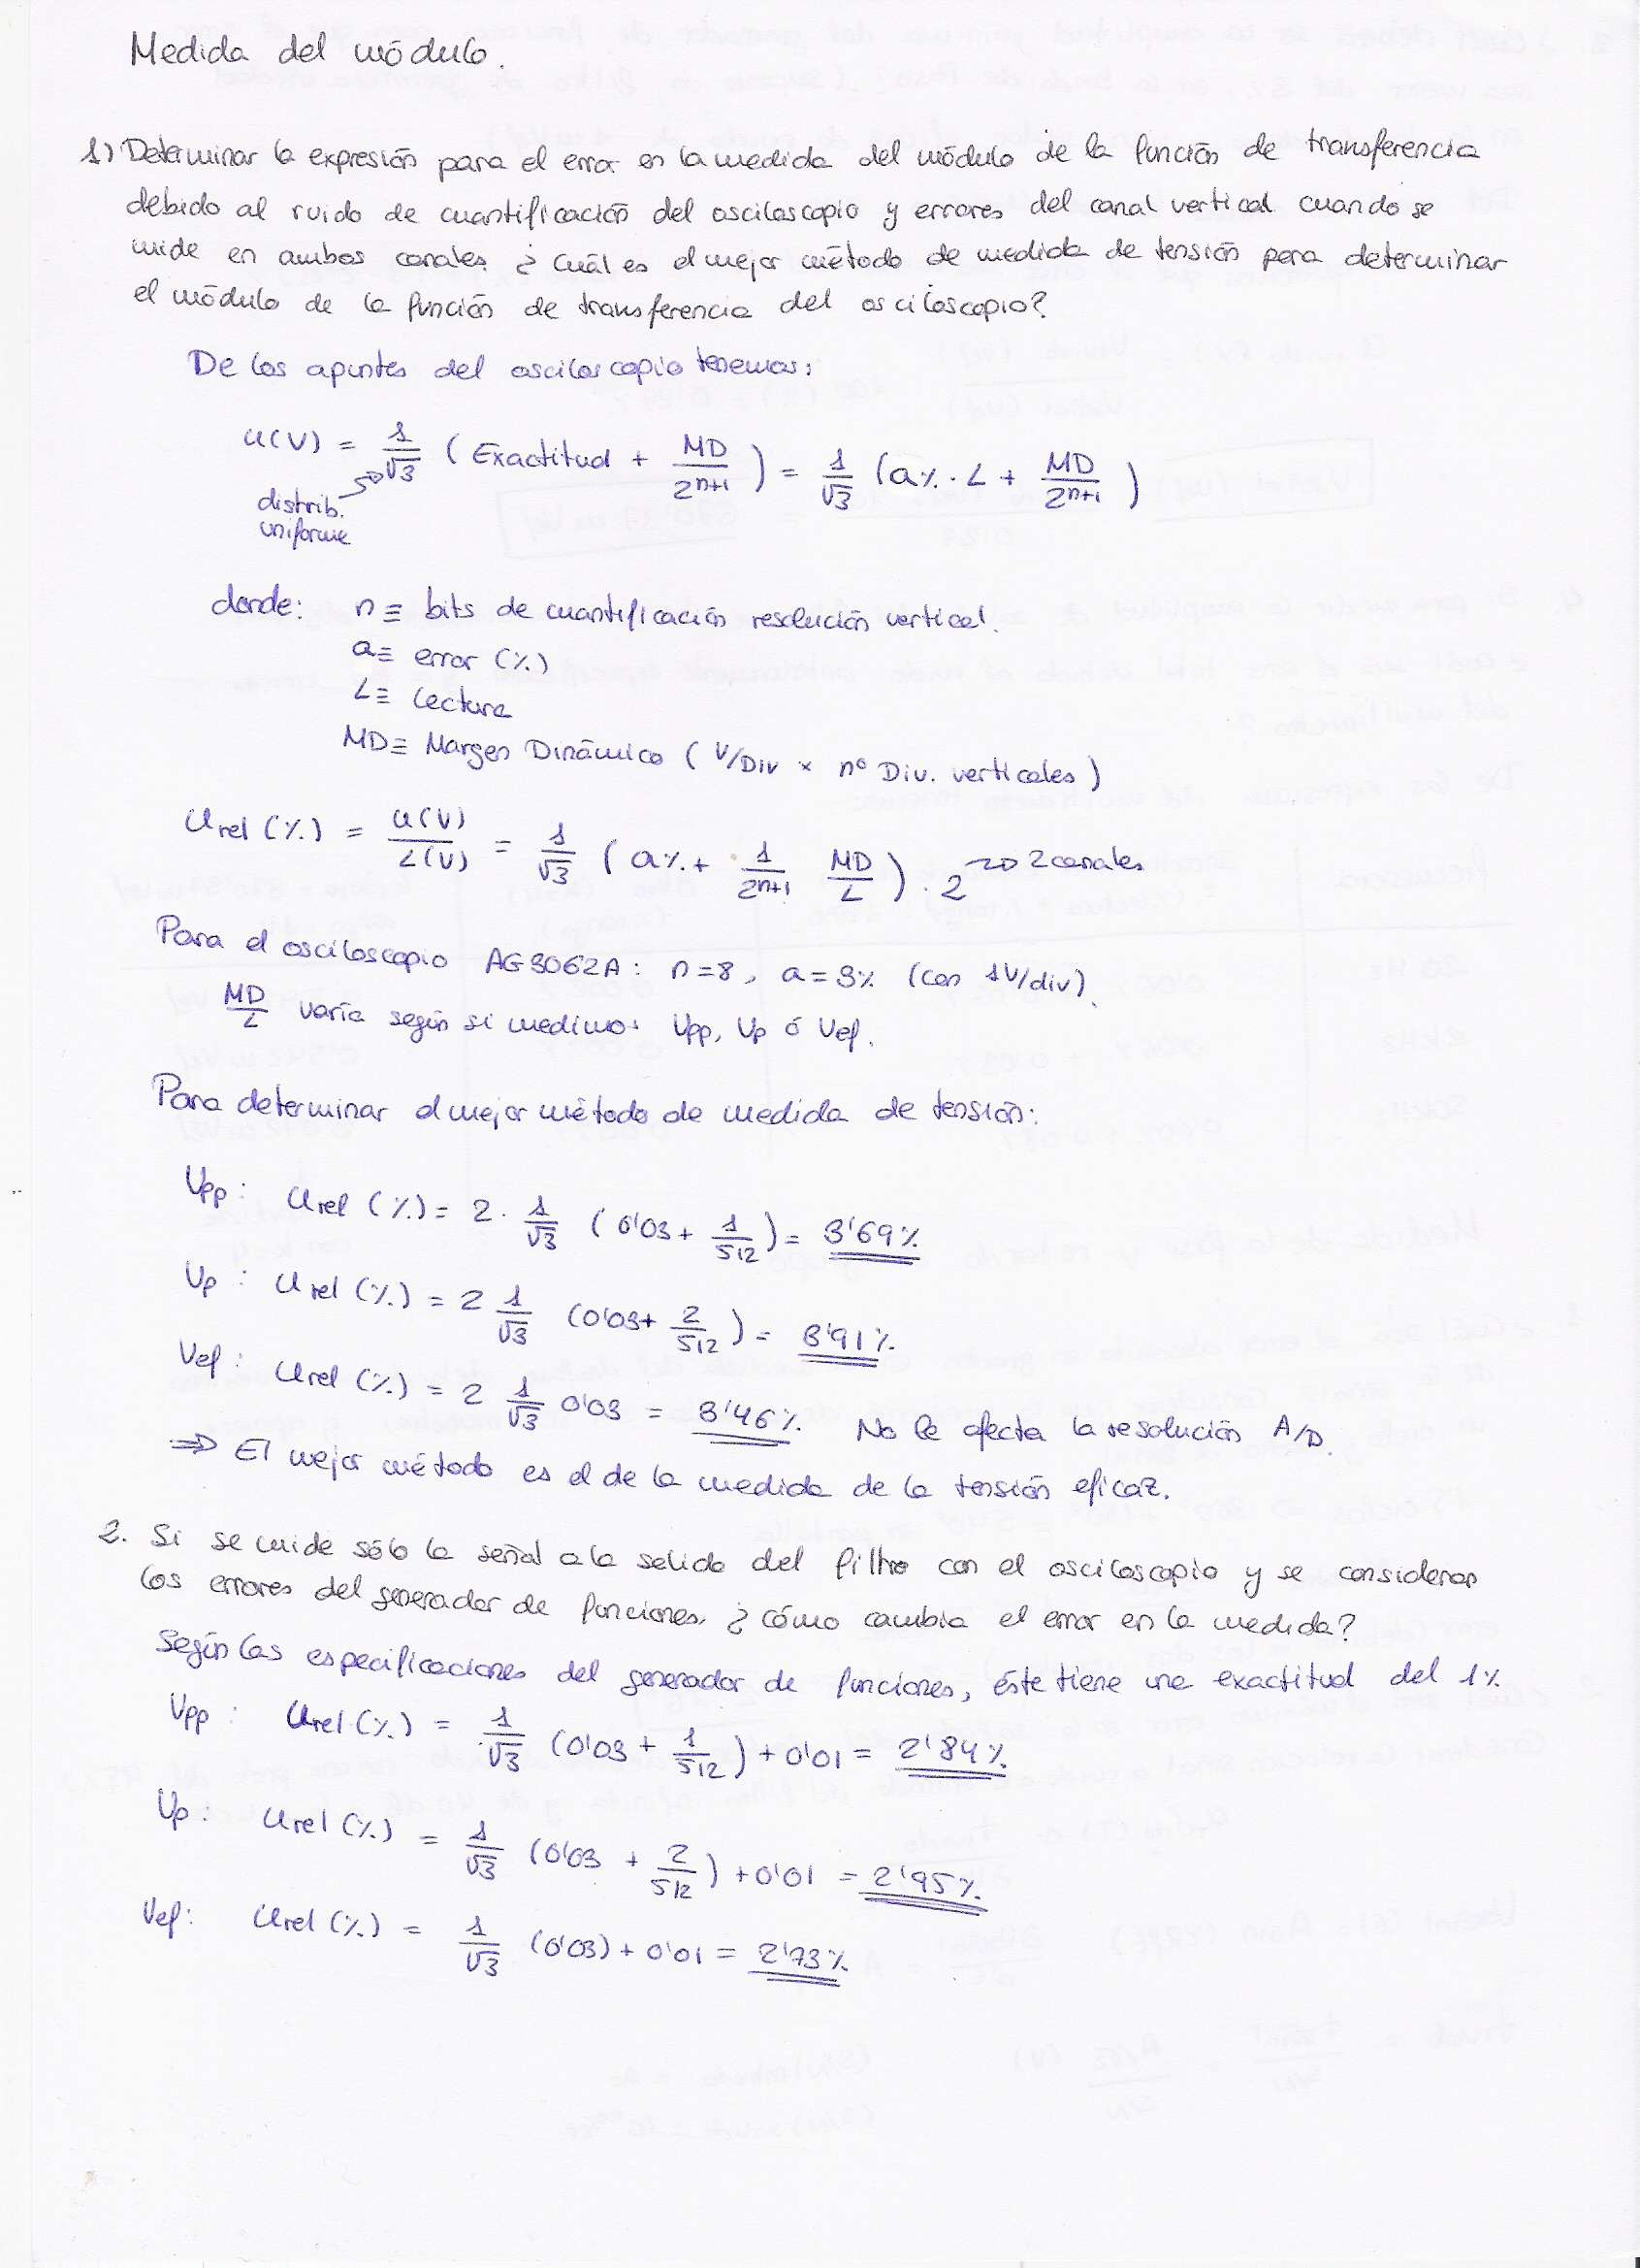 Medida del módulo.
1) Determinar la expresión para el error en la medida del módulo de la función de transferencia
debido al ruido de cuantificación del osciloscopio y errores del canal vertical cuando se
mide en ambos canales. ¿Cuál es el mejor método de medida de tensión para determinar
el módulo de la función de transferencia del osciloscopio?
De los apuntes del osciloscopio tenemos:
u(V) = 1/√3 (Exactitud + MD/2^(n+1)) = 1/√3 (a%·L + MD/2^(n+1))
distrib.
uniforme
donde: n ≡ bits de cuantificación resolución vertical.
a ≡ error (%)
L ≡ Lectura
MD ≡ Margen Dinámico (V/Div × nº Div. verticales)
Urel (%) = u(V)/L(V) = 1/√3 (a% + 1/2^(n+1) MD/L) · 2 → 2 canales
Para el osciloscopio AG3062A: n=8, a=3% (con 1V/div).
MD/L varía según si medimos Vpp, Vp ó Vef.
Para determinar el mejor método de medida de tensión:
Vpp: Urel (%) = 2 · 1/√3 (0'03 + 1/512) = 3'69%
Vp: Urel (%) = 2 1/√3 (0'03 + 2/512) = 3'91%
Vef: Urel (%) = 2 1/√3 0'03 = 3'46% No le afecta la resolución A/D.
⇒ El mejor método es el de la medida de la tensión eficaz.
2. Si se mide sólo la señal a la salida del filtro con el osciloscopio y se consideran
los errores del generador de funciones, ¿cómo cambia el error en la medida?
Según las especificaciones del generador de funciones, éste tiene una exactitud del 1%
Vpp: Urel (%) = 1/√3 (0'03 + 1/512) + 0'01 = 2'84%
Vp: Urel (%) = 1/√3 (0'03 + 2/512) + 0'01 = 2'95%
Vef: Urel (%) = 1/√3 (0'03) + 0'01 = 2'73%